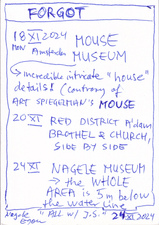 FORGOT
18 XI 2024 MOUSE
MON Amsterdam MUSEUM
incredible intricate "house"
details! (Contrary of
ART SPIEGELMAN'S MOUSE
20 XI RED DISTRICT A'dam
BROTHEL & CHURCH,
SIDE BY SIDE
24 XI NAGELE MUSEUM
→ the WHOLE
AREA is 5m below
the water line
Nagele "ALL w J.S." 24 XI 2024